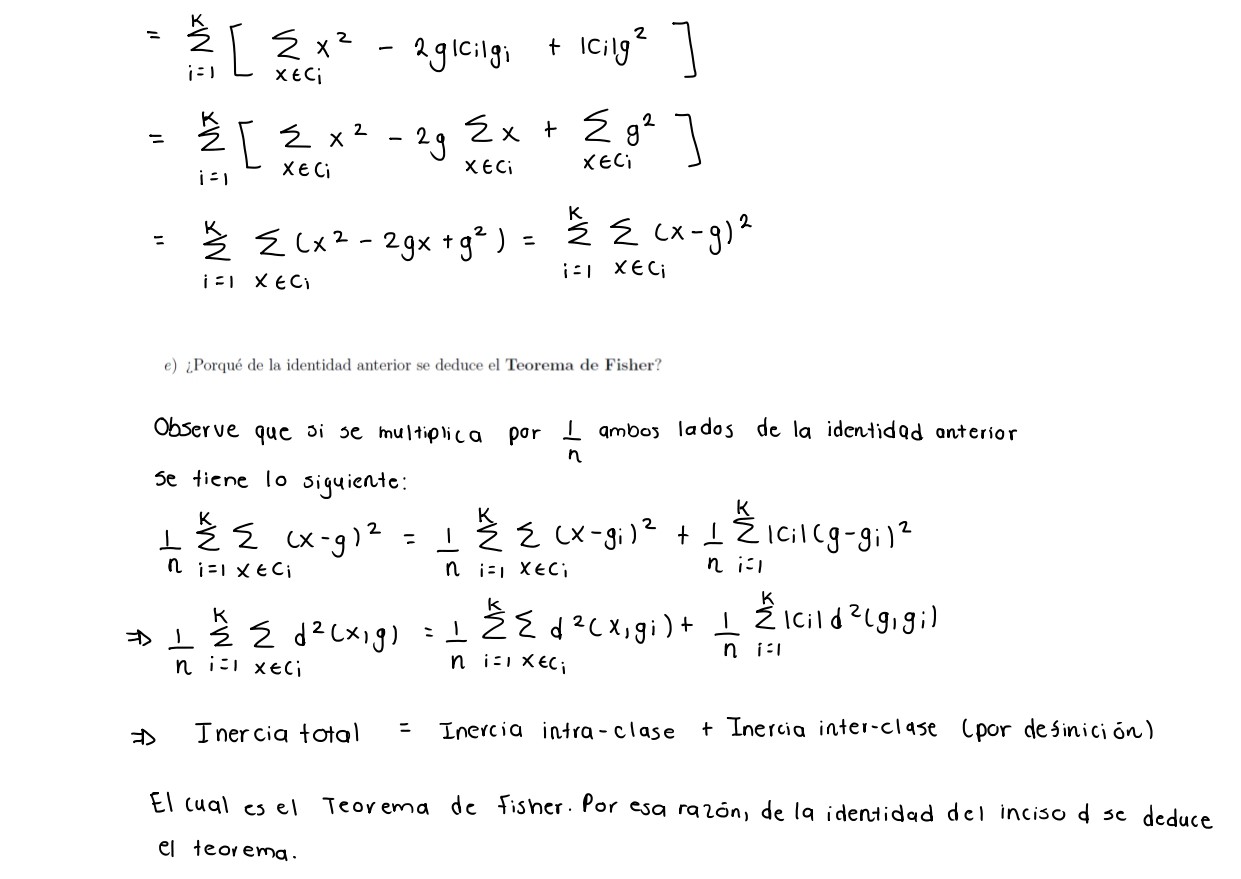 = K∑i=1 [ ∑x∈Ci x² - 2g|Ci|gi + |Ci|g² ]
= K∑i=1 [ ∑x∈Ci x² - 2g ∑x∈Ci x + ∑x∈Ci g² ]
= K∑i=1 ∑x∈Ci (x² - 2gx + g²) = K∑i=1 ∑x∈Ci (x-g)²
e) ¿Porqué de la identidad anterior se deduce el Teorema de Fisher?
Observe que si se multiplica por 1/n ambos lados de la identidad anterior
se tiene lo siguiente:
1/n K∑i=1 ∑x∈Ci (x-g)² = 1/n K∑i=1 ∑x∈Ci (x-gi)² + 1/n K∑i=1 |Ci|(g-gi)²
⇒ 1/n K∑i=1 ∑x∈Ci d²(x,g) = 1/n K∑i=1 ∑x∈Ci d²(x,gi) + 1/n K∑i=1 |Ci|d²(g,gi)
⇒ Inercia total = Inercia intra-clase + Inercia inter-clase (por definición)
El cual es el Teorema de Fisher. Por esa razón, de la identidad del inciso d se deduce
el teorema.